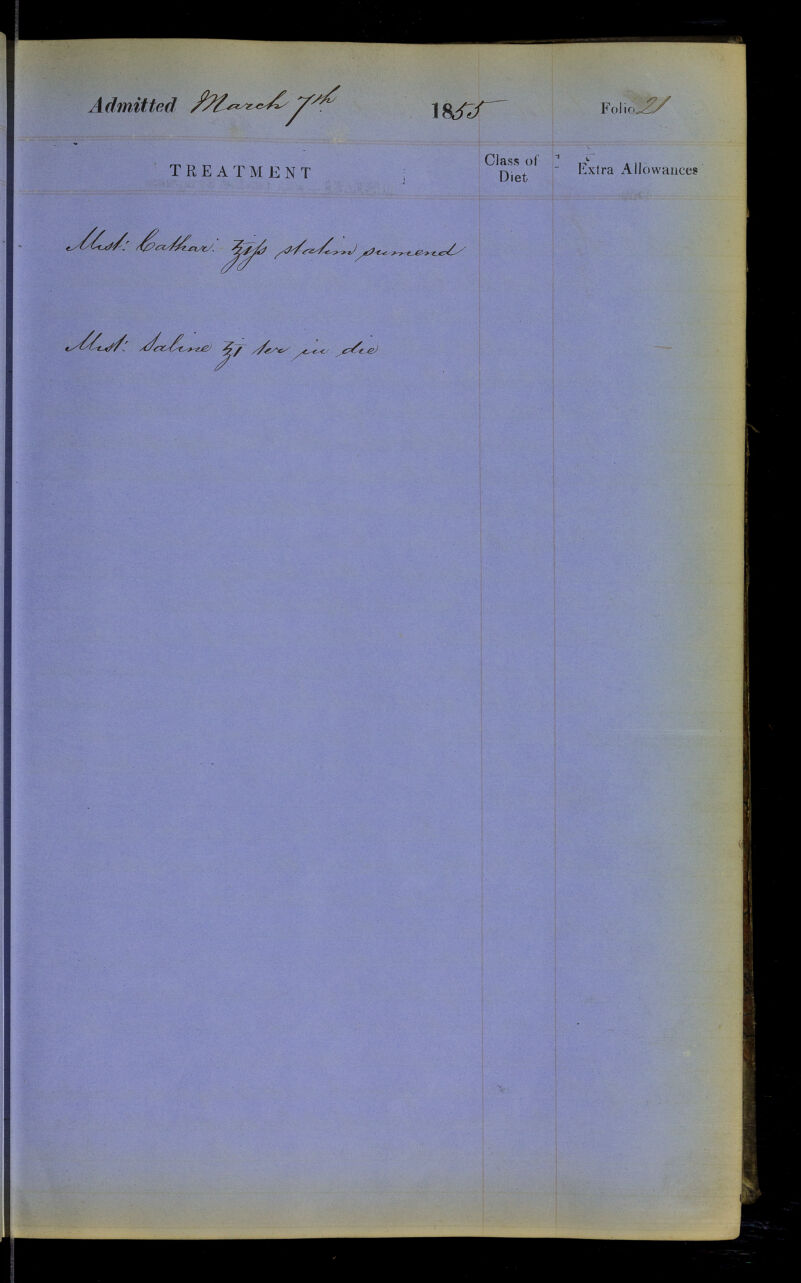 Admitted March 7th 1855 Folio 21
TREATMENT Class of Diet Extra Allowances
Mist: Cathar: ℥iſs statim sumend
Mist: Saline ℥j ter in die